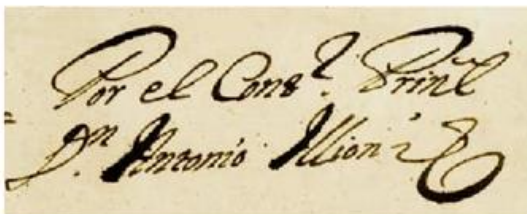 Por el Cons.r Prinl
Dn. Antonio Illion